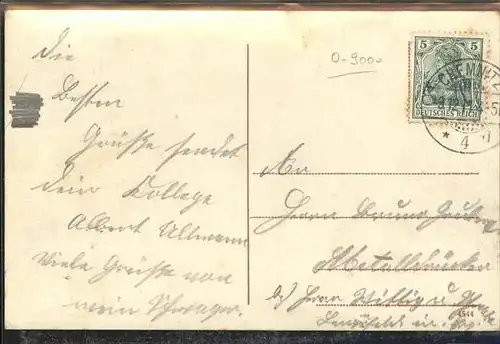 Die
Besten
Grüße sendet
dein College
Albert Ullmann
Viele Grüße von
mein Schwager.
0-9000
5 5
DEUTSCHES REICH
CHEMNITZ
* 4
An
Herrn Bruno
Metalldrucker
b/ Herrn Wittig u.
4544